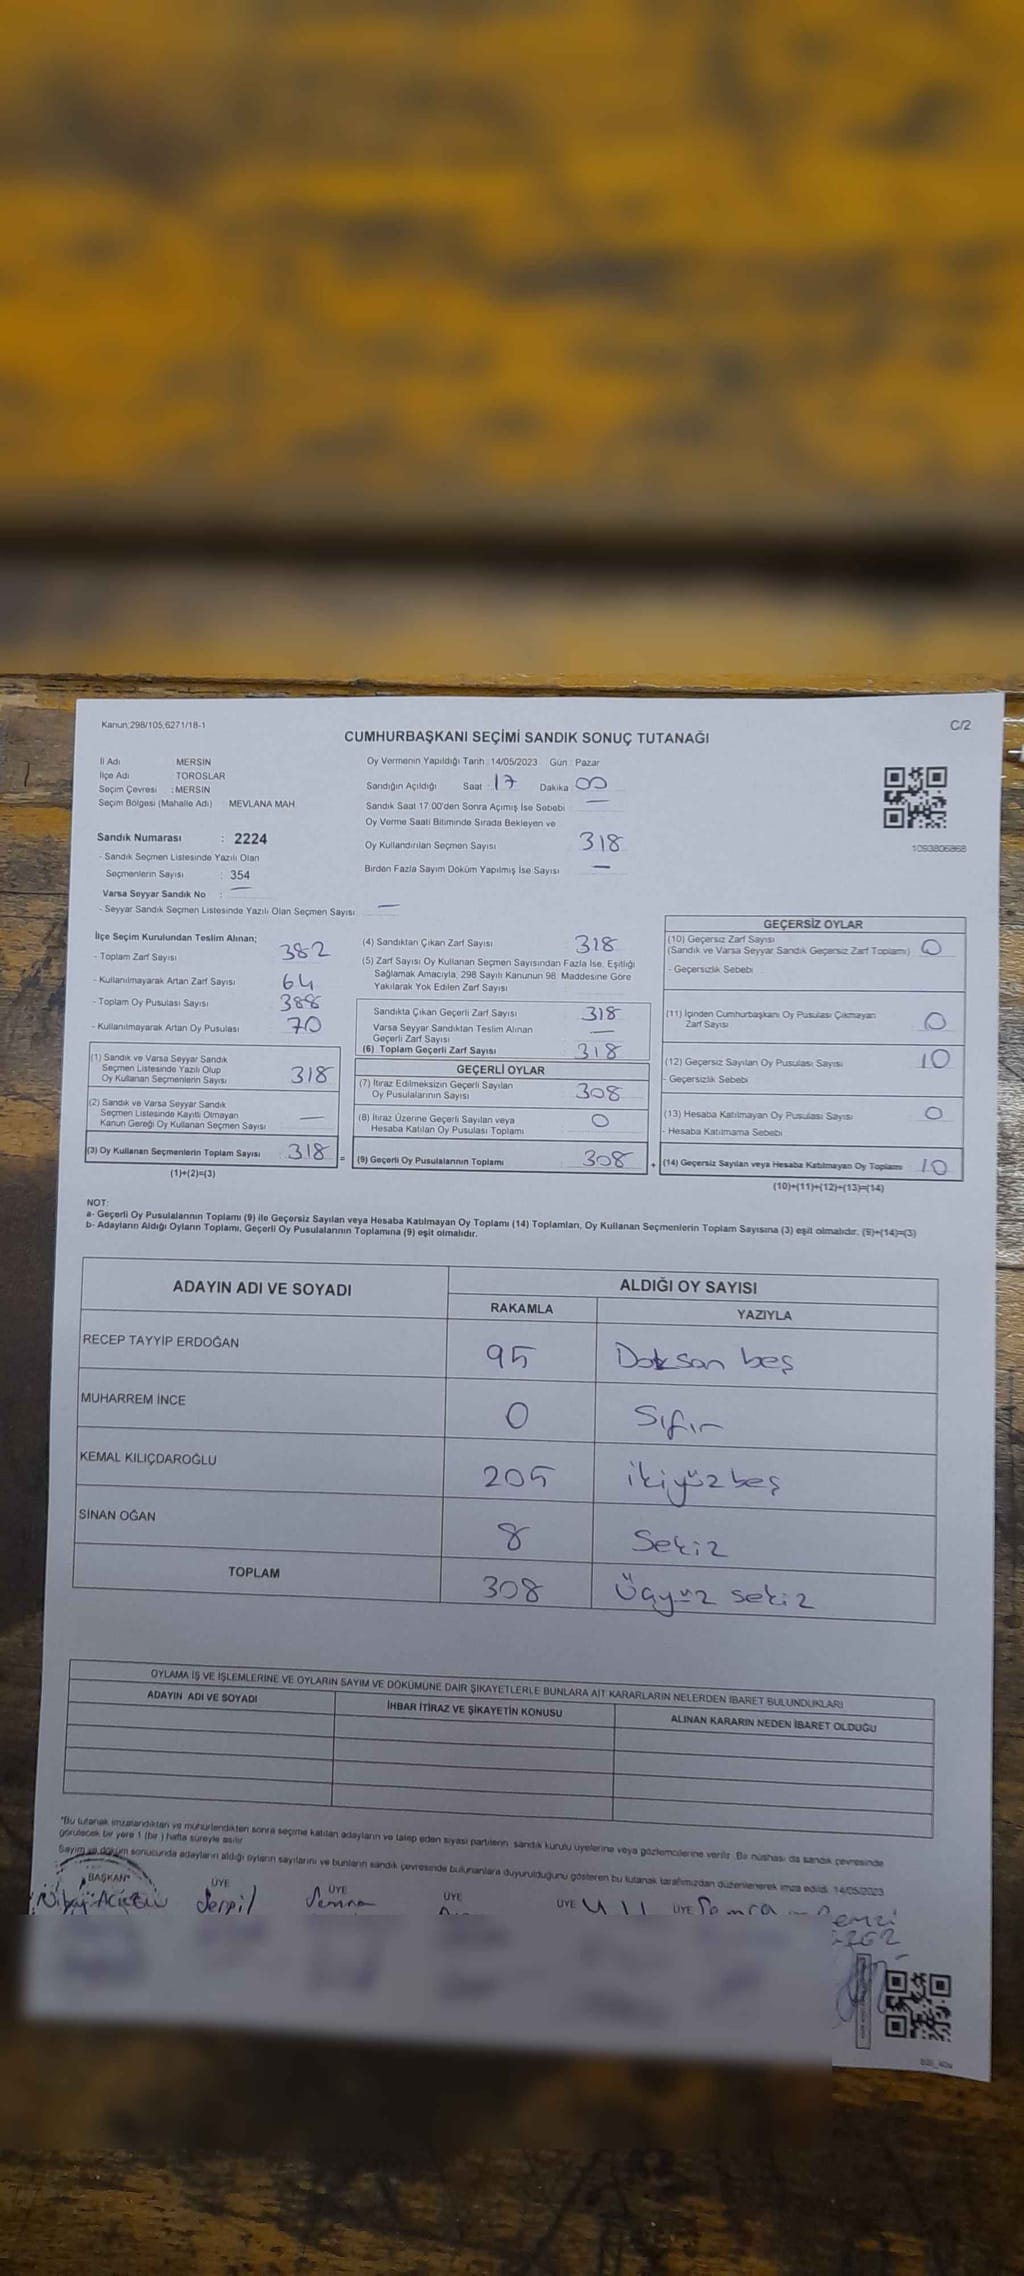 Kanun;298/105,6271/18-1
C/2
CUMHURBAŞKANI SEÇİMİ SANDIK SONUÇ TUTANAĞI
İl Adı : MERSİN
İlçe Adı : TOROSLAR
Seçim Çevresi : MERSİN
Seçim Bölgesi (Mahalle Adı) : MEVLANA MAH.
Oy Vermenin Yapıldığı Tarih : 14/05/2023 Gün : Pazar
Sandığın Açıldığı Saat : 17 Dakika : 00
Sandık Saat 17:00'den Sonra Açımış İse Sebebi : —
Oy Verme Saati Bitiminde Sırada Bekleyen ve
Oy Kullandırılan Seçmen Sayısı 318
Birden Fazla Sayım Döküm Yapılmış İse Sayısı —
1093806868
Sandık Numarası : 2224
- Sandık Seçmen Listesinde Yazılı Olan
Seçmenlerin Sayısı : 354
Varsa Seyyar Sandık No : —
- Seyyar Sandık Seçmen Listesinde Yazılı Olan Seçmen Sayısı : —
İlçe Seçim Kurulundan Teslim Alınan;
- Toplam Zarf Sayısı 382
- Kullanılmayarak Artan Zarf Sayısı 64
- Toplam Oy Pusulası Sayısı 388
- Kullanılmayarak Artan Oy Pusulası 70
(1) Sandık ve Varsa Seyyar Sandık
Seçmen Listesinde Yazılı Olup
Oy Kullanan Seçmenlerin Sayısı 318
(2) Sandık ve Varsa Seyyar Sandık
Seçmen Listesinde Kayıtlı Olmayan
Kanun Gereği Oy Kullanan Seçmen Sayısı —
(3) Oy Kullanan Seçmenlerin Toplam Sayısı : 318 =
(1)+(2)=(3)
(4) Sandıktan Çıkan Zarf Sayısı 318
(5) Zarf Sayısı Oy Kullanan Seçmen Sayısından Fazla İse, Eşitliği
Sağlamak Amacıyla, 298 Sayılı Kanunun 98. Maddesine Göre
Yakılarak Yok Edilen Zarf Sayısı
Sandıkta Çıkan Geçerli Zarf Sayısı 318
Varsa Seyyar Sandıktan Teslim Alınan
Geçerli Zarf Sayısı —
(6) Toplam Geçerli Zarf Sayısı 318
GEÇERLİ OYLAR
(7) İtiraz Edilmeksizin Geçerli Sayılan
Oy Pusulalarının Sayısı 308
(8) İtiraz Üzerine Geçerli Sayılan veya
Hesaba Katılan Oy Pusulası Toplamı 0
(9) Geçerli Oy Pusulalarının Toplamı 308 +
GEÇERSİZ OYLAR
(10) Geçersiz Zarf Sayısı
(Sandık ve Varsa Seyyar Sandık Geçersiz Zarf Toplamı) 0
- Geçersizlik Sebebi
(11) İçinden Cumhurbaşkanı Oy Pusulası Çıkmayan
Zarf Sayısı 0
(12) Geçersiz Sayılan Oy Pusulası Sayısı 10
- Geçersizlik Sebebi
(13) Hesaba Katılmayan Oy Pusulası Sayısı 0
- Hesaba Katılmama Sebebi
(14) Geçersiz Sayılan veya Hesaba Katılmayan Oy Toplamı 10
(10)+(11)+(12)+(13)=(14)
NOT:
a- Geçerli Oy Pusulalarının Toplamı (9) ile Geçersiz Sayılan veya Hesaba Katılmayan Oy Toplamı (14) Toplamları, Oy Kullanan Seçmenlerin Toplam Sayısına (3) eşit olmalıdır. (9)+(14)=(3)
b- Adayların Aldığı Oyların Toplamı, Geçerli Oy Pusulalarının Toplamına (9) eşit olmalıdır.
ADAYIN ADI VE SOYADI ALDIĞI OY SAYISI
RAKAMLA YAZIYLA
RECEP TAYYİP ERDOĞAN 95 Doksan beş
MUHARREM İNCE 0 Sıfır
KEMAL KILIÇDAROĞLU 205 ikiyüzbeş
SİNAN OĞAN 8 Sekiz
TOPLAM 308 Üçyüz sekiz
OYLAMA İŞ VE İŞLEMLERİNE VE OYLARIN SAYIM VE DÖKÜMÜNE DAİR ŞİKAYETLERLE BUNLARA AİT KARARLARIN NELERDEN İBARET BULUNDUKLARI
ADAYIN ADI VE SOYADI İHBAR İTİRAZ VE ŞİKAYETİN KONUSU ALINAN KARARIN NEDEN İBARET OLDUĞU
*Bu tutanak imzalandıktan ve mühürlendikten sonra seçime katılan adayların ve talep eden siyasi partilerin, sandık kurulu üyelerine veya gözlemcilerine verilir. Bir nüshası da sandık çevresinde
görülecek bir yere 1 (bir ) hafta süreyle asılır.
Sayım ve döküm sonucunda adayların aldığı oyların sayılarını ve bunların sandık çevresinde bulunanlara duyurulduğunu gösteren bu tutanak tarafımızdan düzenlenerek imza edildi. 14/05/2023
BAŞKAN ÜYE ÜYE ÜYE ÜYE ÜYE
Serpil